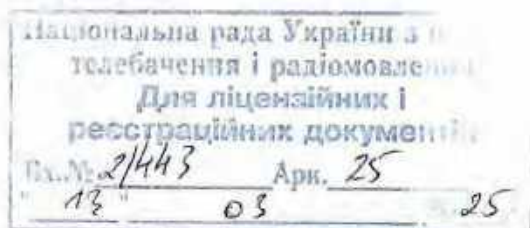 Національна рада України з
телебачення і радіомовлення
Для ліцензійних і
реєстраційних документів
Вх.№ 2/443 Арк. 25
" 13 " 03 25